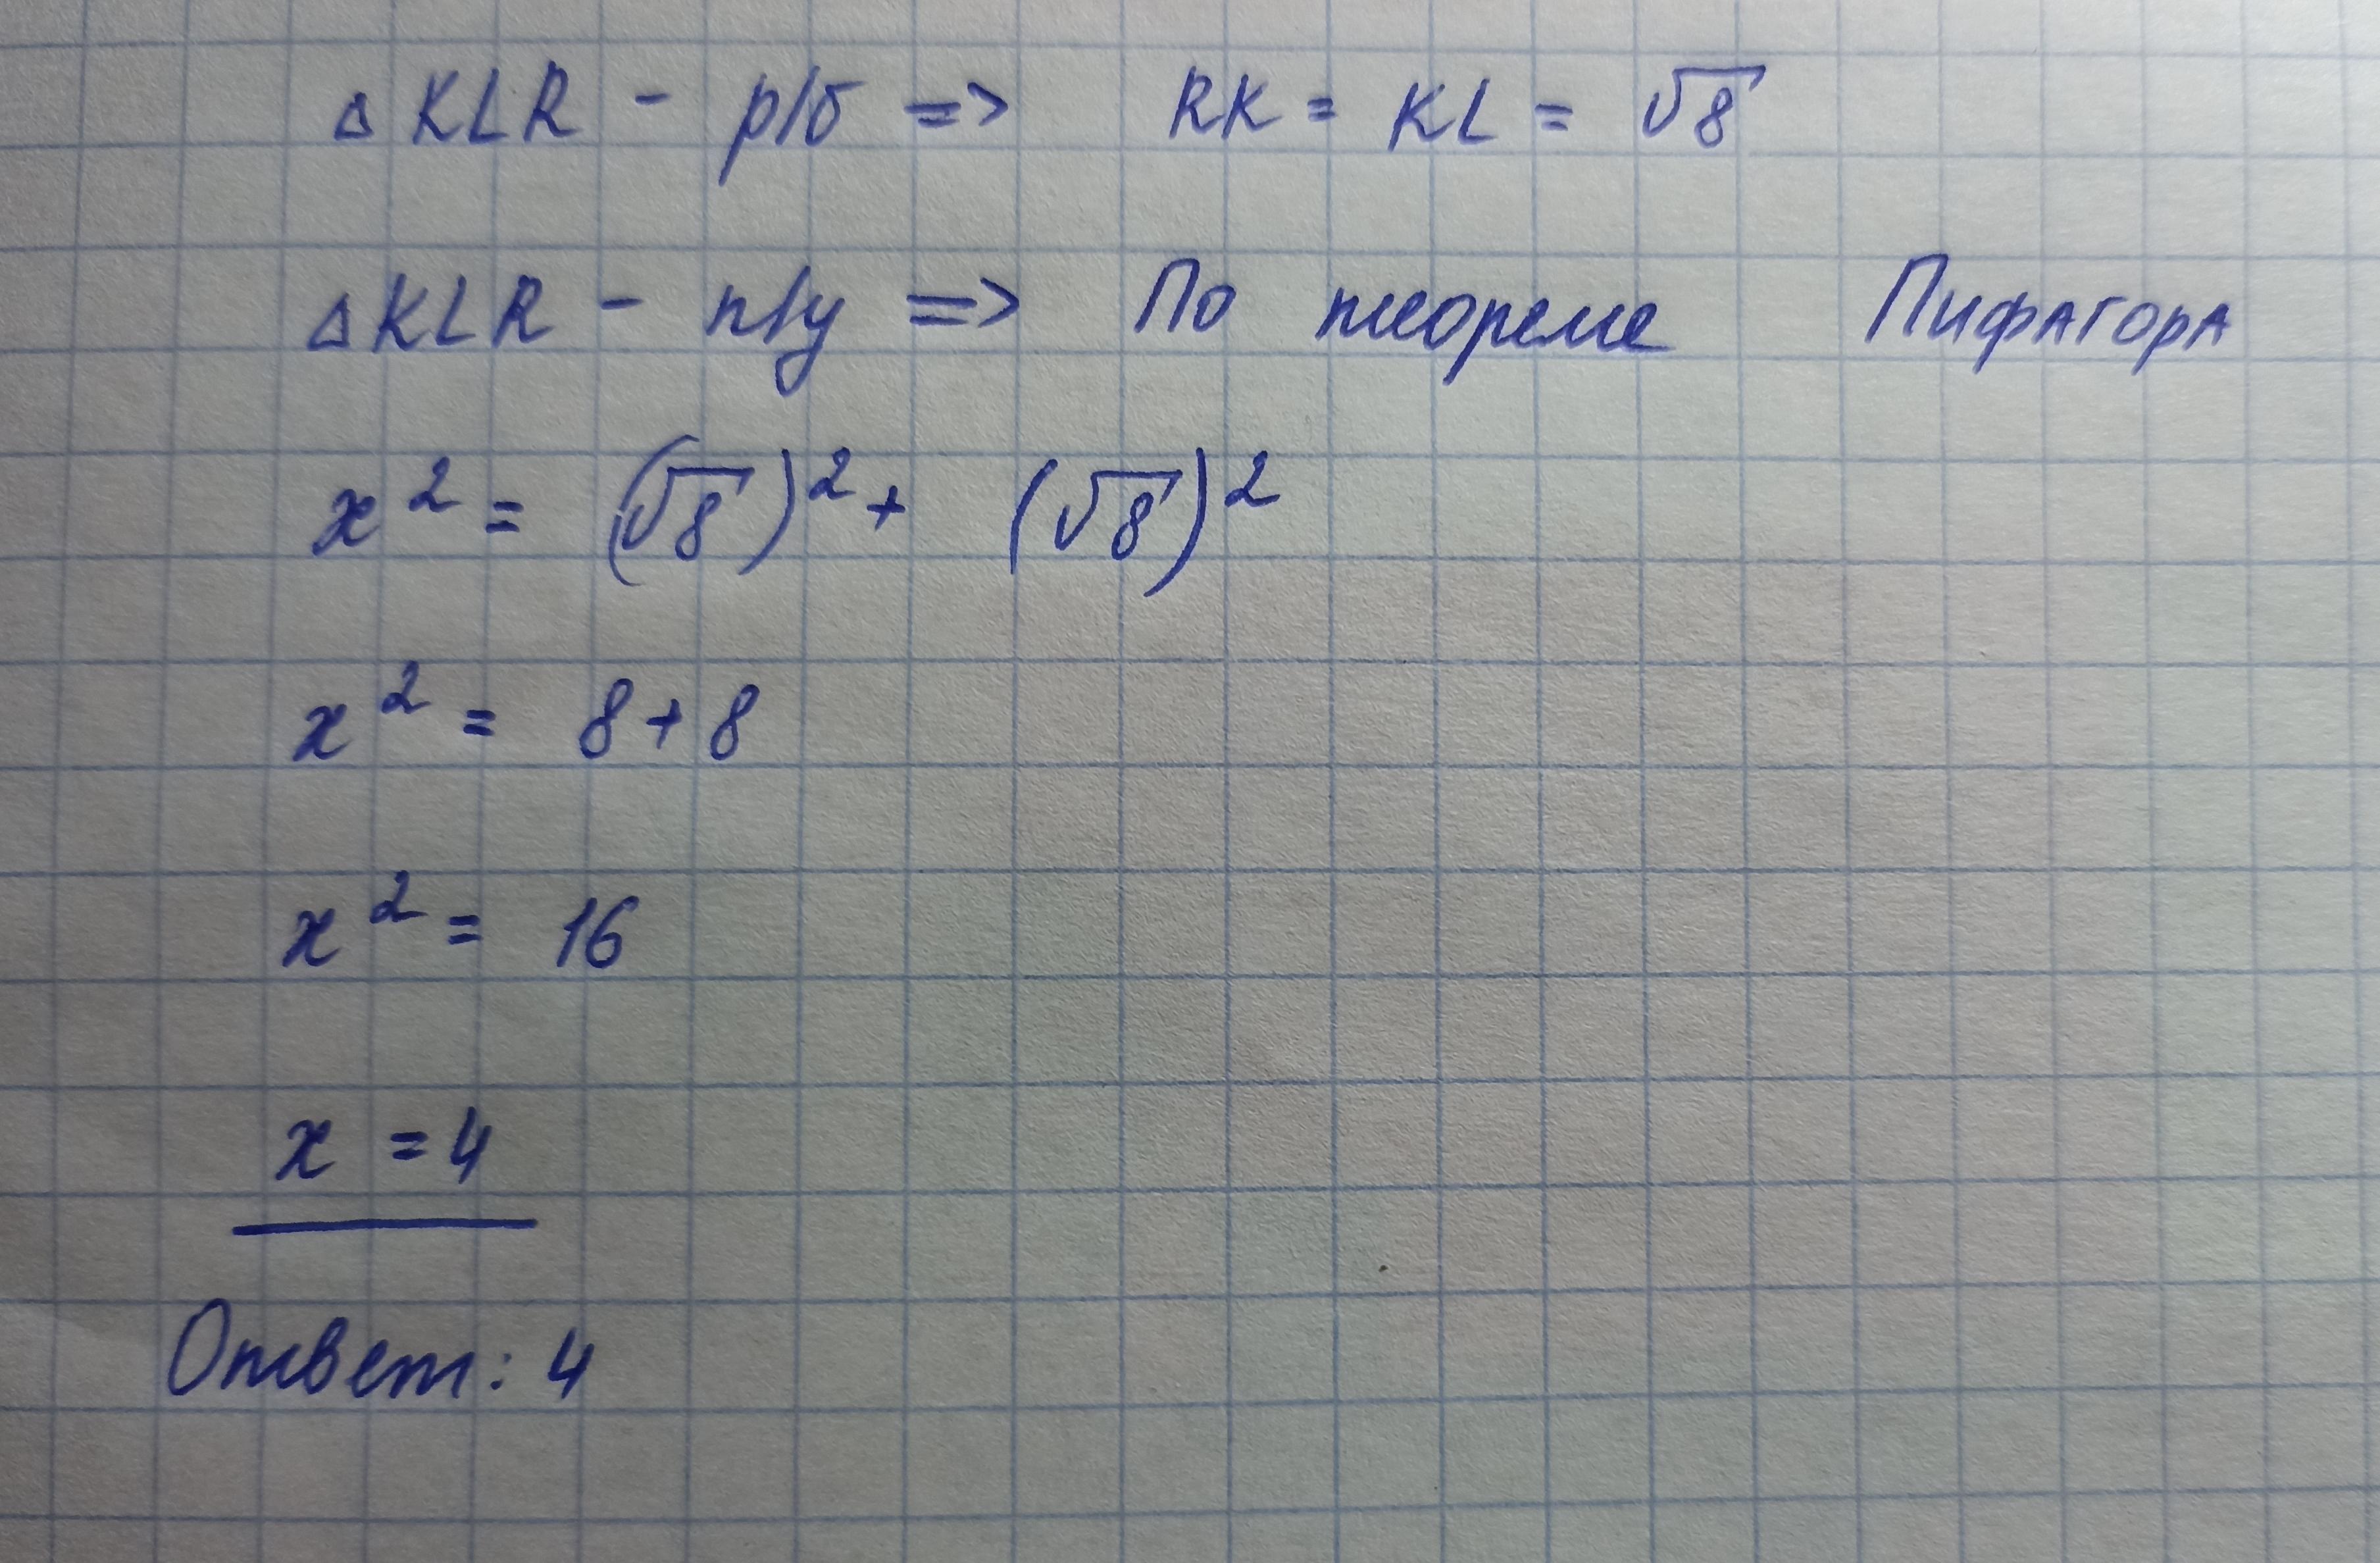 △KLR - р/б => RK = KL = √8
△KLR - п/у => По теореме Пифагора
x² = (√8)² + (√8)²
x² = 8 + 8
x² = 16
x = 4
Ответ: 4